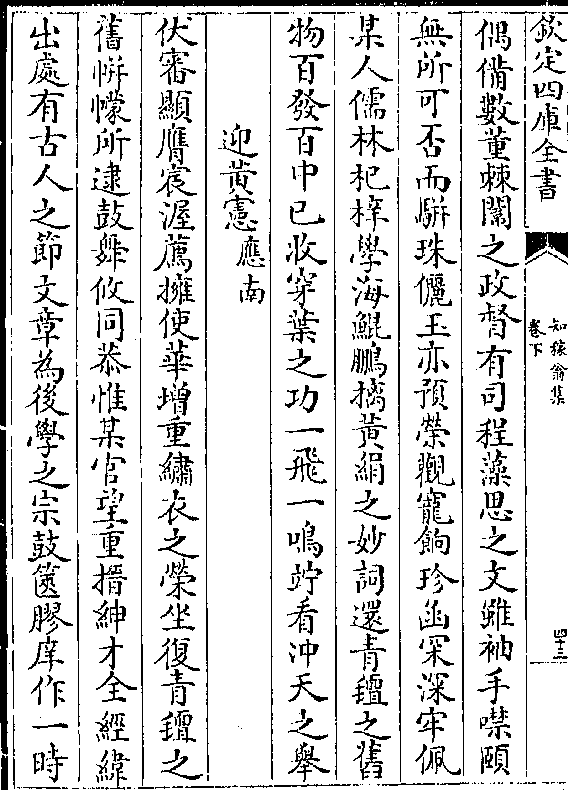 欽定四庫全書
知稼翁集
卷下
四十三
偶備數董棘闈之政督有司程藻思之文雖袖手噤頤
無所可否而駢珠儷玉亦預榮觀寵餉珍函罙深牢佩
某人儒林杞梓學海鯤鵬擒黄絹之妙詞還青氊之舊
物百發百中已收穿葉之功一飛一鳴竚看沖天之舉
迎黄憲應南
伏審顯膺宸渥薦擁使華增重繡衣之榮坐復青氊之
舊帡幪所逮鼓舞攸同恭惟某官望重搢紳才全經緯
出處有古人之節文章為後學之宗鼓篋膠庠作一時